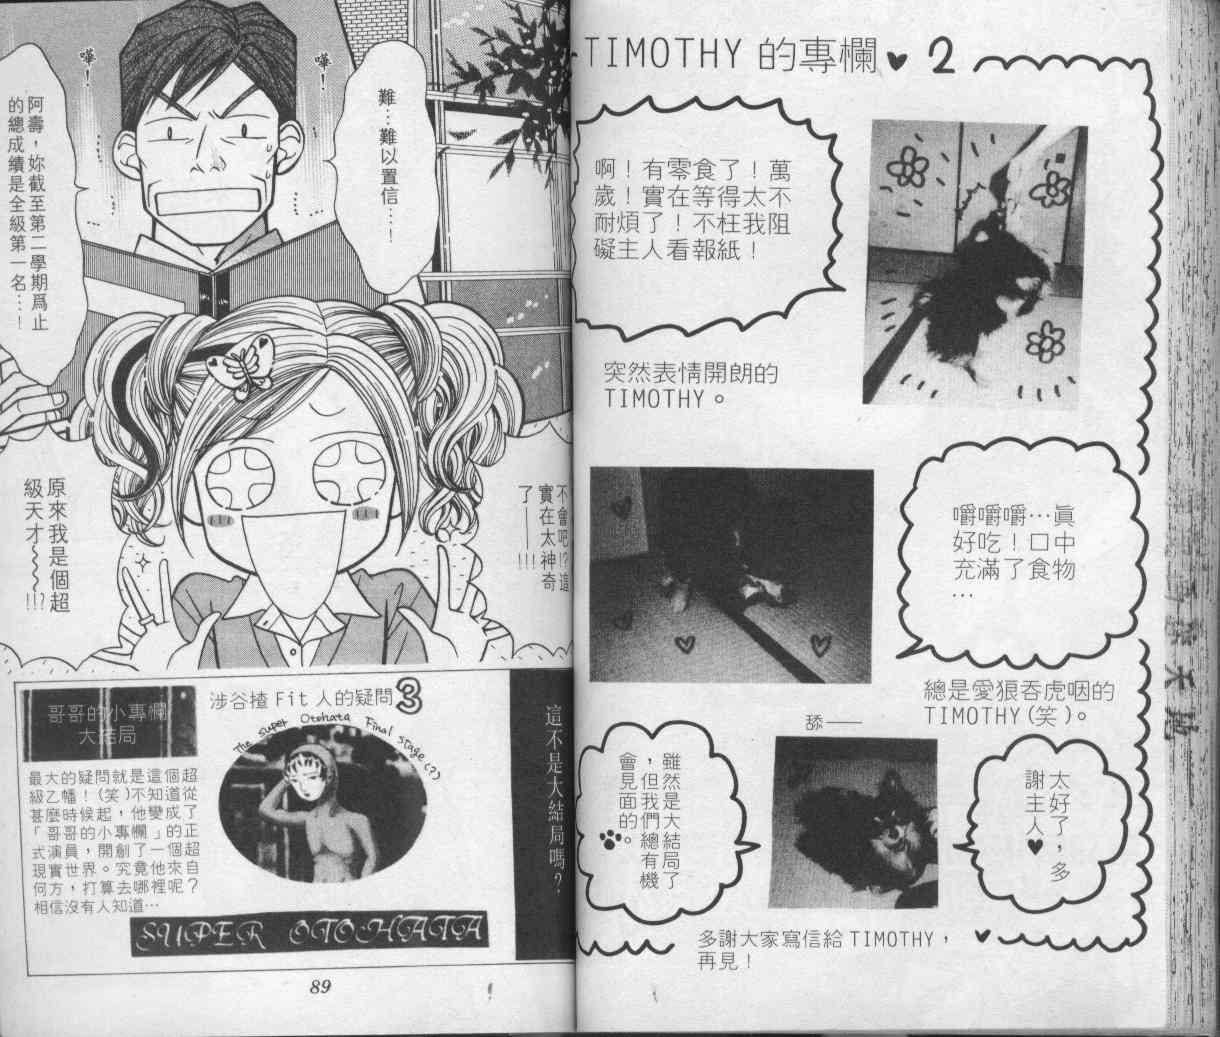 嘩！
嘩！
難…難以置信…！
阿壽，妳截至第二學期爲止
的總成績是全級第一名…！
不會吧!?這
實在太神奇
了——!!!
原來我是個超
級天才～～～!!?
哥哥的小專欄
大結局
涉谷揸 Fit 人的疑問3
The super Otohata Final stage(?)
最大的疑問就是這個超
級乙幡！(笑)不知道從
甚麼時候起，他變成了
「哥哥的小專欄」的正
式演員，開創了一個超
現實世界。究竟他來自
何方，打算去哪裡呢？
相信沒有人知道…
SUPER OTOHATA
這不是大結局嗎？
89
TIMOTHY 的專欄♥ 2
啊！有零食了！萬
歲！實在等得太不
耐煩了！不枉我阻
礙主人看報紙！
突然表情開朗的
TIMOTHY。
嚼嚼嚼…眞
好吃！口中
充滿了食物
…
總是愛狼吞虎咽的
TIMOTHY(笑)。
舔——
太好了，多
謝主人♥
雖然是大結局了
，但我們總有機
會見面的。
多謝大家寫信給 TIMOTHY，
再見！